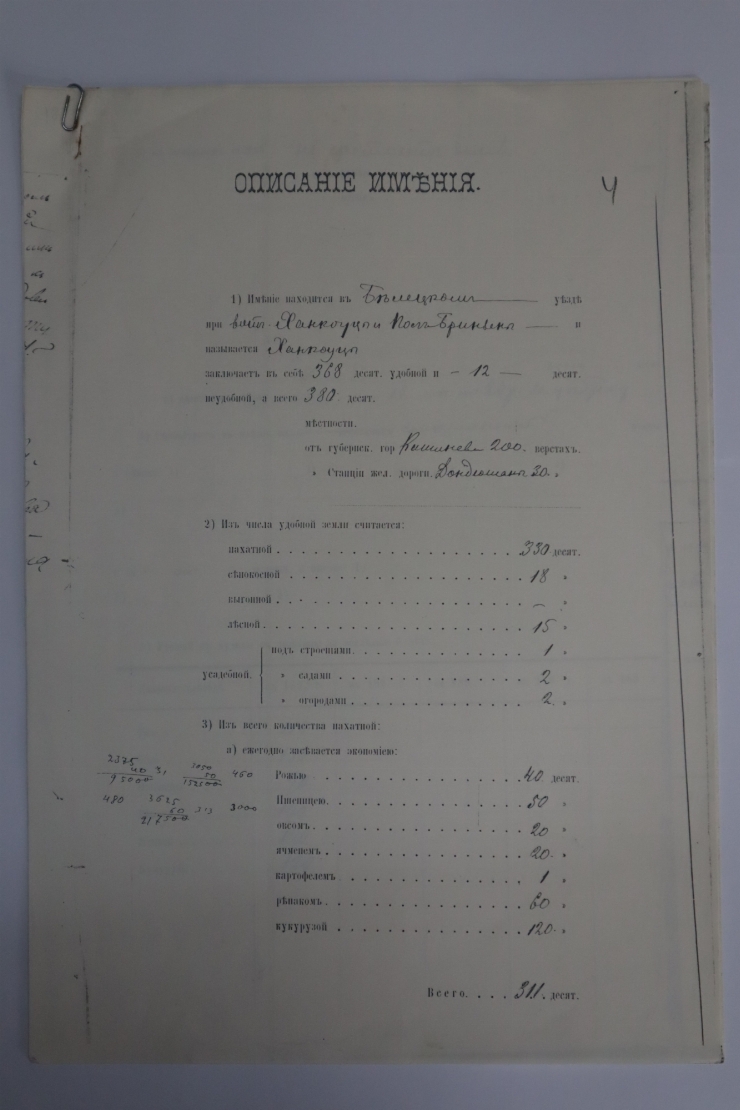 ОПИСАНІЕ ИМѢНІЯ.
4
1) Имѣніе находится въ Бѣлецкомъ уѣздѣ
при вотч. Ханкоуцы и и
называется Ханкоуцы
заключаетъ въ себѣ 368 десят. удобной и – 12 — десят.
неудобной, а всего 380 десят.
мѣстности.
отъ губернск. гор Кишинева 200. верстахъ.
„ Станціи жел. дороги. Дондюшаны 20 „
2) Изъ числа удобной земли считается:
пахатной 330 десят.
сѣнокосной 18 „
выгонной — „
лѣсной 15 „
усадебной. подъ строеніями 1 „
„ садами 2 „
„ огородами 2 „
3) Изъ всего количества пахатной:
а) ежегодно засѣвается экономіею:
2375
40 31
95000
3050
50 460
152500
Рожью 40 десят.
Пшеницею 50 „
480
3625
60 313 3000
217500
овсомъ 20 „
ячменемъ 20 „
картофелемъ 1 „
рѣпакомъ 60 „
кукурузой 120 „
Всего 311. десят.